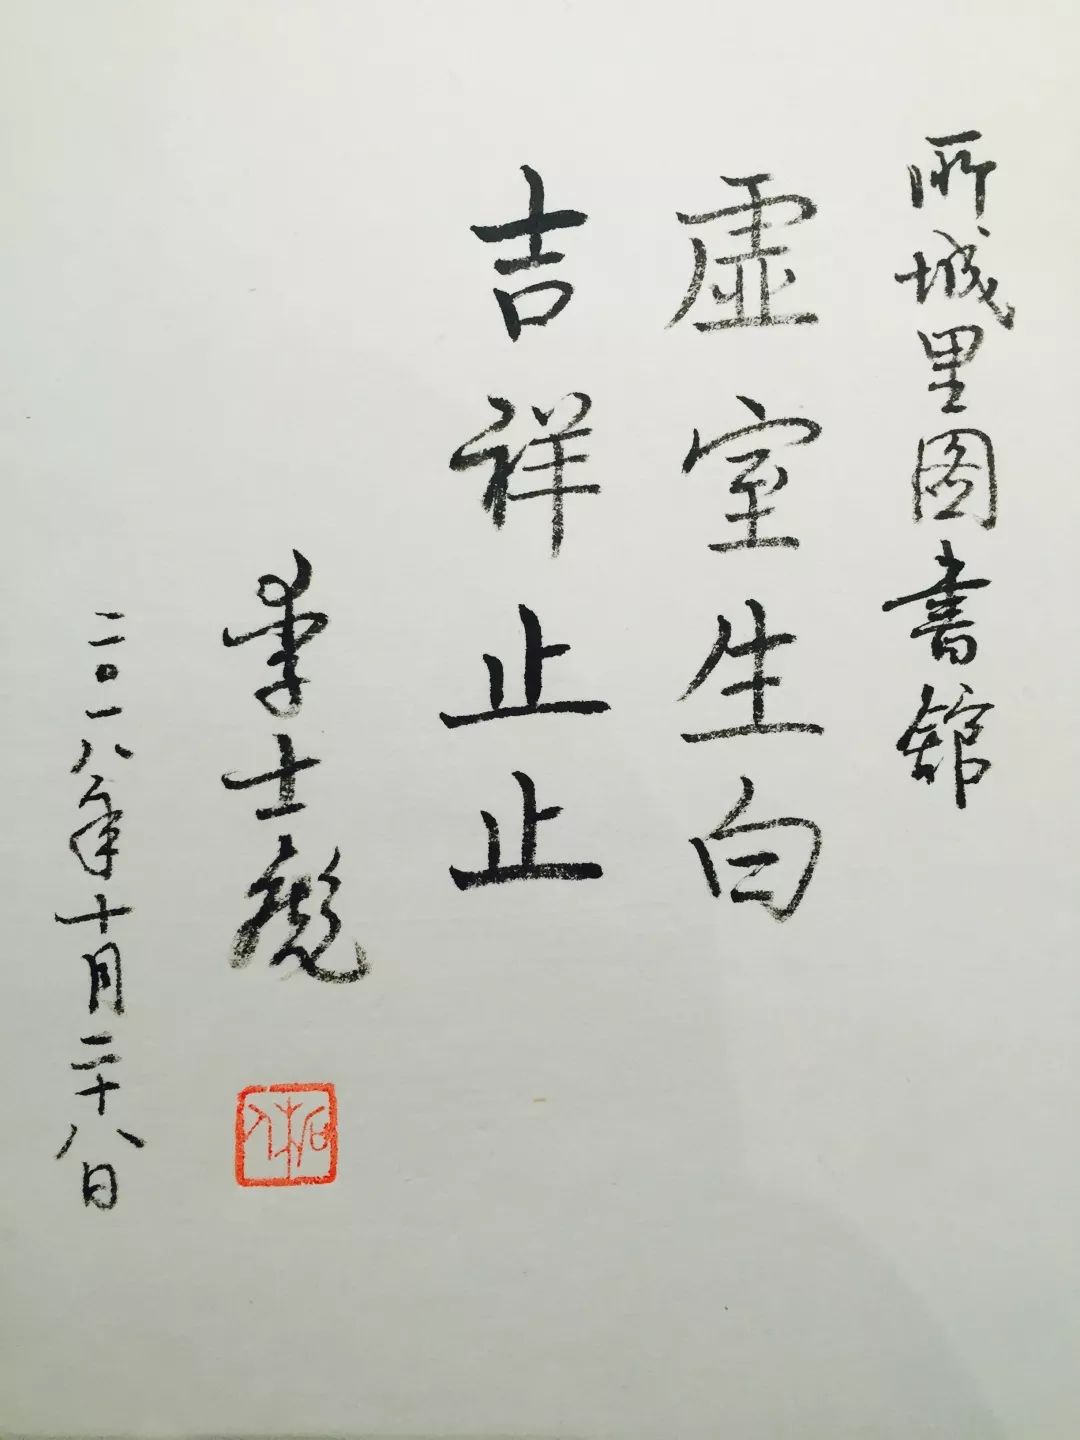 所城里图书舘
虚室生白
吉祥止止
李士彪
二〇一八年十月二十八日